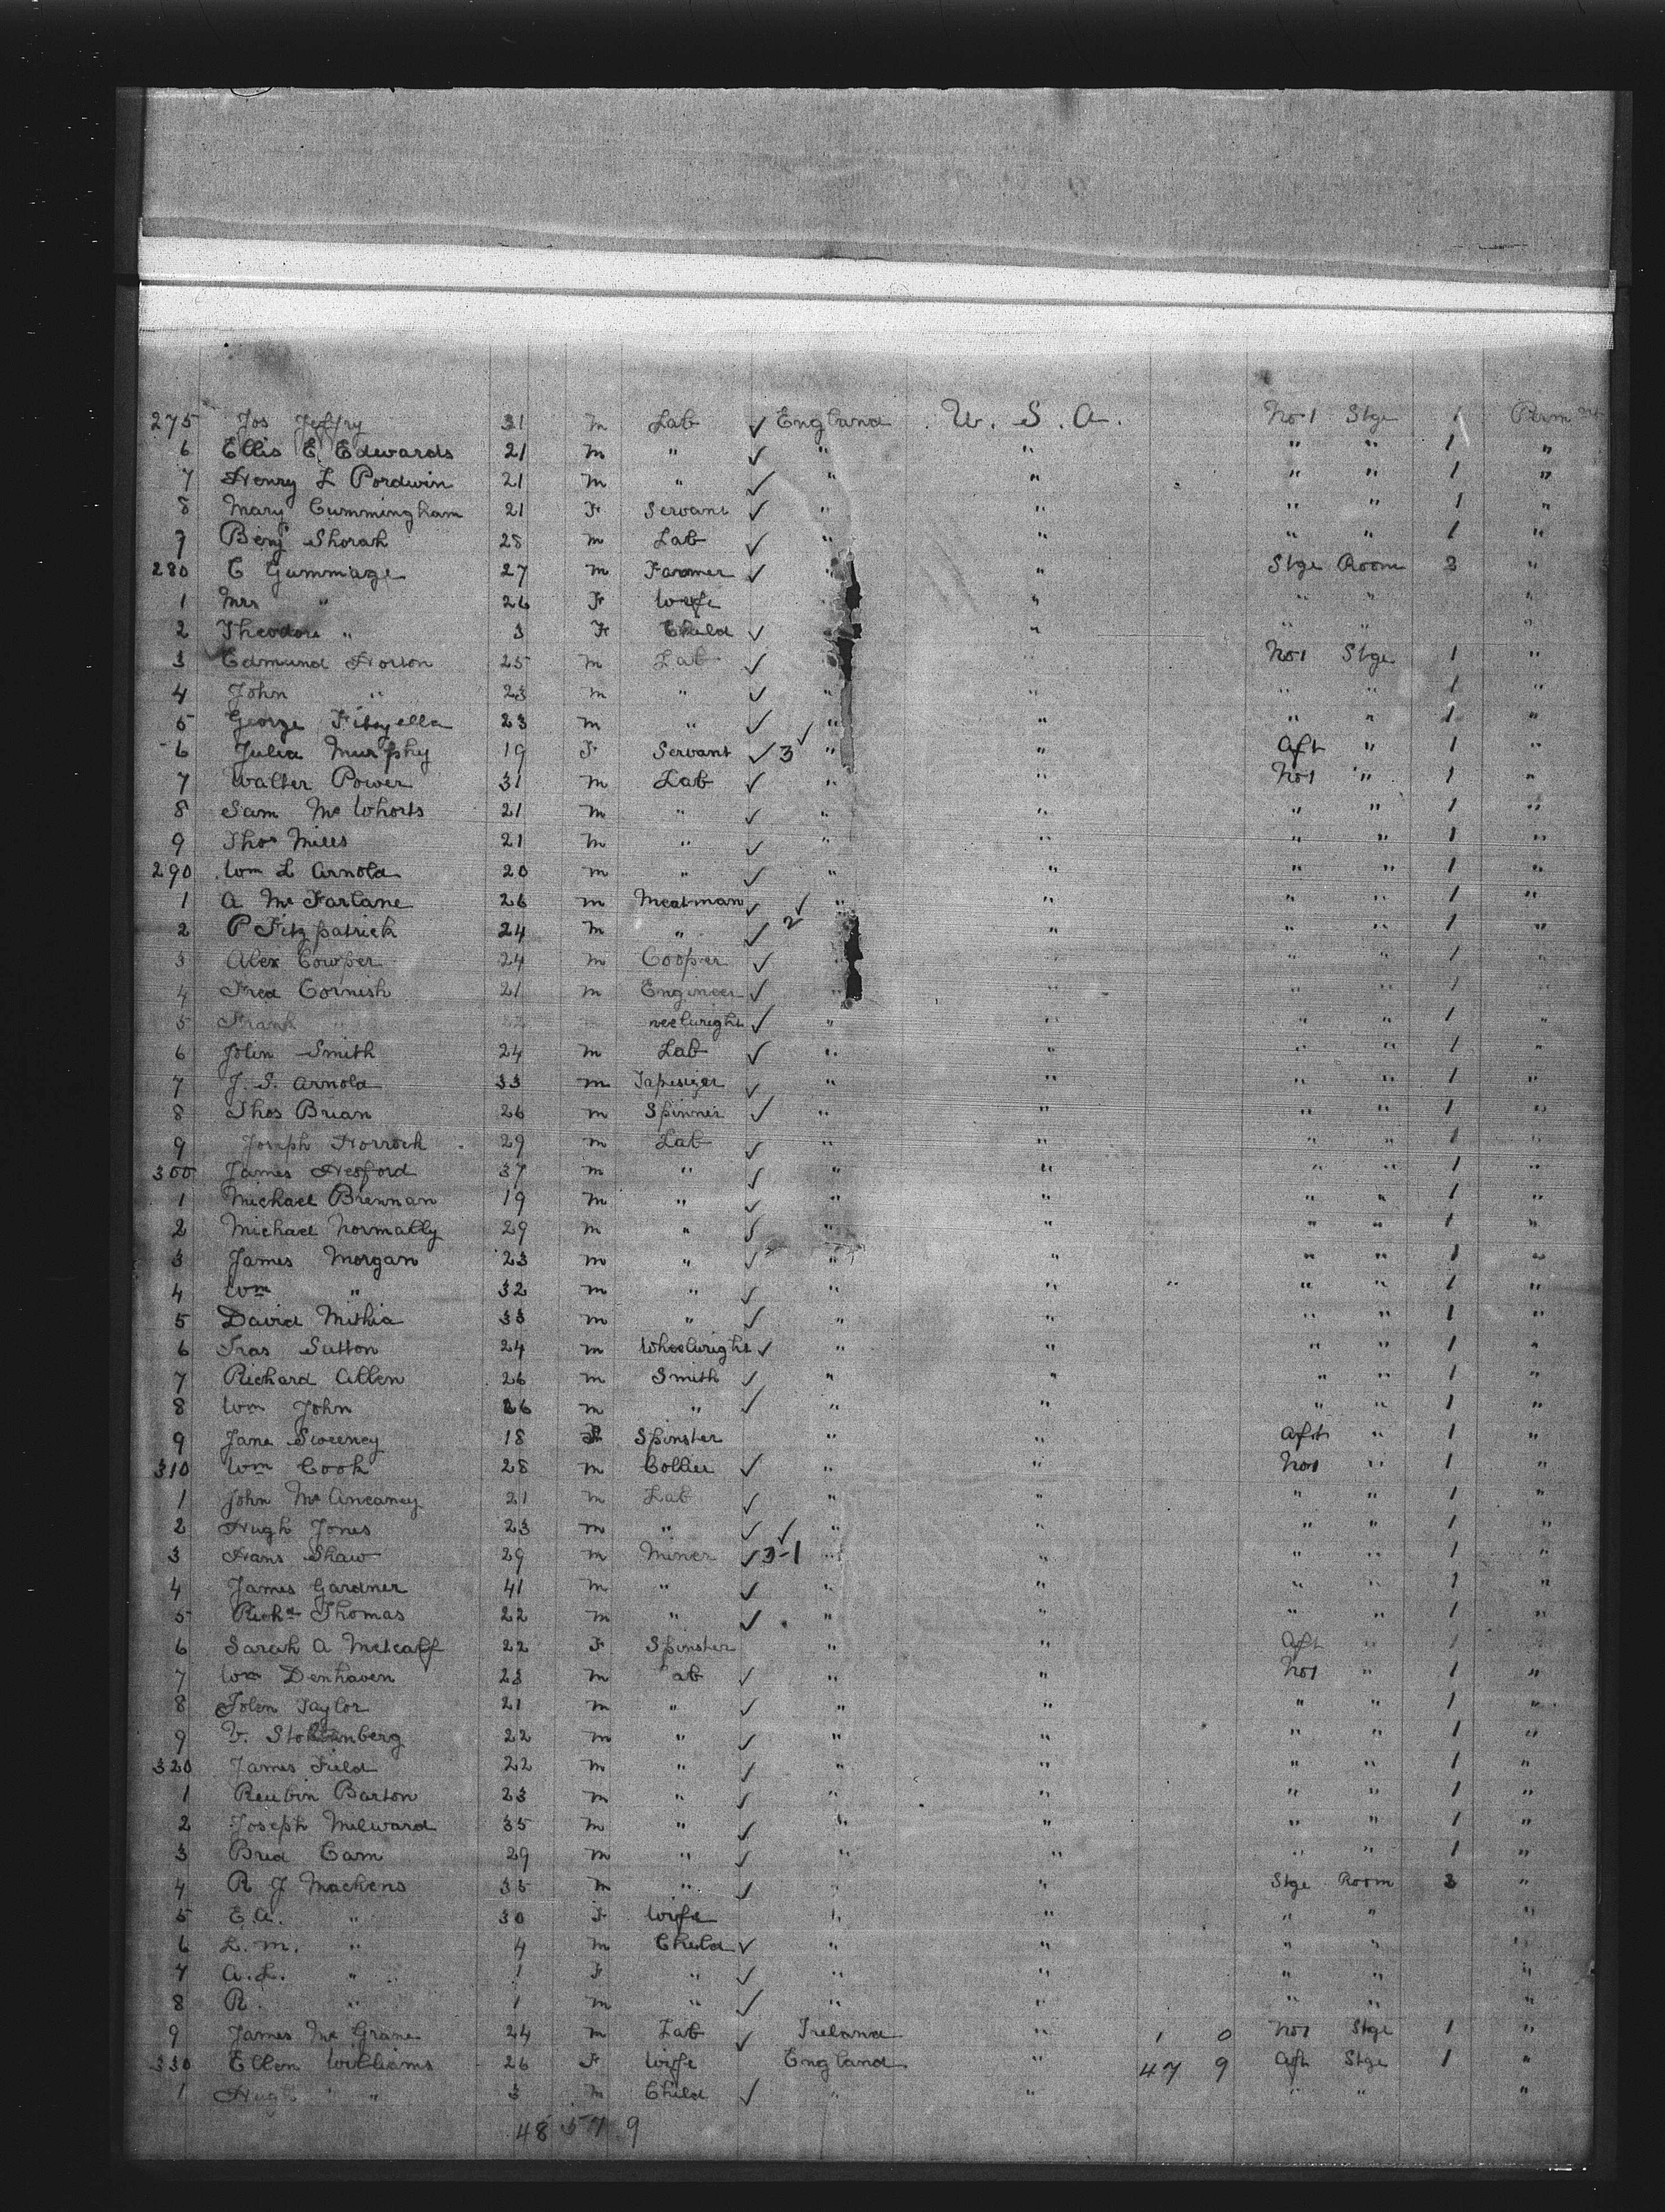 275 Jos Jeffry 31 m Lab ✓ England U. S. A. No 1 Stge 1 Perm
6 Ellis E. Edwards 21 m " ✓ " " " " 1 "
7 Henry L Pordwin 21 m " ✓ " " " " 1 "
8 Mary Cummingham 21 F Servant ✓ " " " " 1 "
9 Benj Shorah 28 m Lab ✓ " " " " 1 "
280 C Gummage 27 m Farmer ✓ " " Stge Room 3 "
1 Mrs " 26 F Wife " " " "
2 Theodore " 3 F Child ✓ " " " "
3 Edmund Horton 25 m Lab ✓ No 1 Stge 1 "
4 John " 23 m " ✓ " " " " 1 "
5 George 23 m " ✓ " " " " 1 "
6 Julia Murphy 19 F Servant ✓ 3 ✓ " " Aft " 1 "
7 Walter Power 31 m Lab ✓ " " No 1 " 1 "
8 Sam Mc Whorts 21 m " ✓ " " " " 1 "
9 Thos Mills 21 m " ✓ " " " " 1 "
290 Wm L Arnold 20 m " ✓ " " " " 1 "
1 A Mc Farlane 26 m Meatman ✓ ✓ " " " " 1 "
2 P Fitzpatrick 24 m " ✓ 2 " " " 1 "
3 Alex Cowper 24 m Cooper ✓ " " " " 1 "
4 Fred Cornish 21 m Engineer ✓ " " " " 1 "
5 Frank " 22 neelwright ✓ " " " " 1 "
6 John Smith 24 m Lab ✓ " " " " 1 "
7 J. S. Arnold 33 m Tapesizer ✓ " " " " 1 "
8 Thos Brian 26 m Spinner ✓ " " " " 1 "
9 Joseph Horrock 29 m Lab ✓ " " " " 1 "
300 James Hesford 37 m " ✓ " " " " 1 "
1 Michael Brennan 19 m " ✓ " " " " 1 "
2 Michael Normally 29 m " ✓ " " " " 1 "
3 James Morgan 23 m " ✓ " " " " 1 "
4 Wm " 32 m " ✓ " " " " " 1 "
5 David Mithia 33 m " ✓ " " " " 1 "
6 Tras Sutton 24 m Wheelwright ✓ " " " " 1 "
7 Richard Allen 26 m Smith ✓ " " " " 1 "
8 Wm John 26 m " ✓ " " " " 1 "
9 Jane Sweeney 18 F Spinster " " Aft " 1 "
310 Wm Cook 28 m Collier ✓ " " No 1 " 1 "
1 John Mc Aneaney 21 m Lab ✓ " " " " 1 "
2 Hugh Jones 23 m " ✓ ✓ " " " " 1 "
3 Hans Shaw 29 m Miner ✓ 3-1 " " " " 1 "
4 James Gardner 41 m " ✓ " " " " 1 "
5 Richd Thomas 22 m " ✓ " " " " 1 "
6 Sarah A Metcalf 22 F Spinster " " Aft " 1 "
7 Wm Denhaven 23 m ab ✓ " " No 1 " 1 "
8 John Taylor 21 m " ✓ " " " " 1 "
9 V. 22 m " ✓ " " " " 1 "
320 James Field 22 m " ✓ " " " " 1 "
1 Reubin Barton 23 m " ✓ " " " " 1 "
2 Joseph Milward 35 m " ✓ " " " " 1 "
3 Bred Cam 29 m " ✓ " " " " 1 "
4 R J Mackens 35 m " ✓ " " Stge Room 3 "
5 E A. " 30 F Wife " " " " "
6 L. M. " 4 m Child ✓ " " " " "
7 A. L. " 1 F " ✓ " " " " "
8 R. " 1 m " ✓ " " " " "
9 James Mc Grane 24 m Lab ✓ Ireland " 1 0 No 1 Stge 1 "
330 Ellen Williams 26 F Wife England " 47 9 Aft Stge 1 "
1 Hugh " 3 m Child ✓ " " " " "
48 57 9